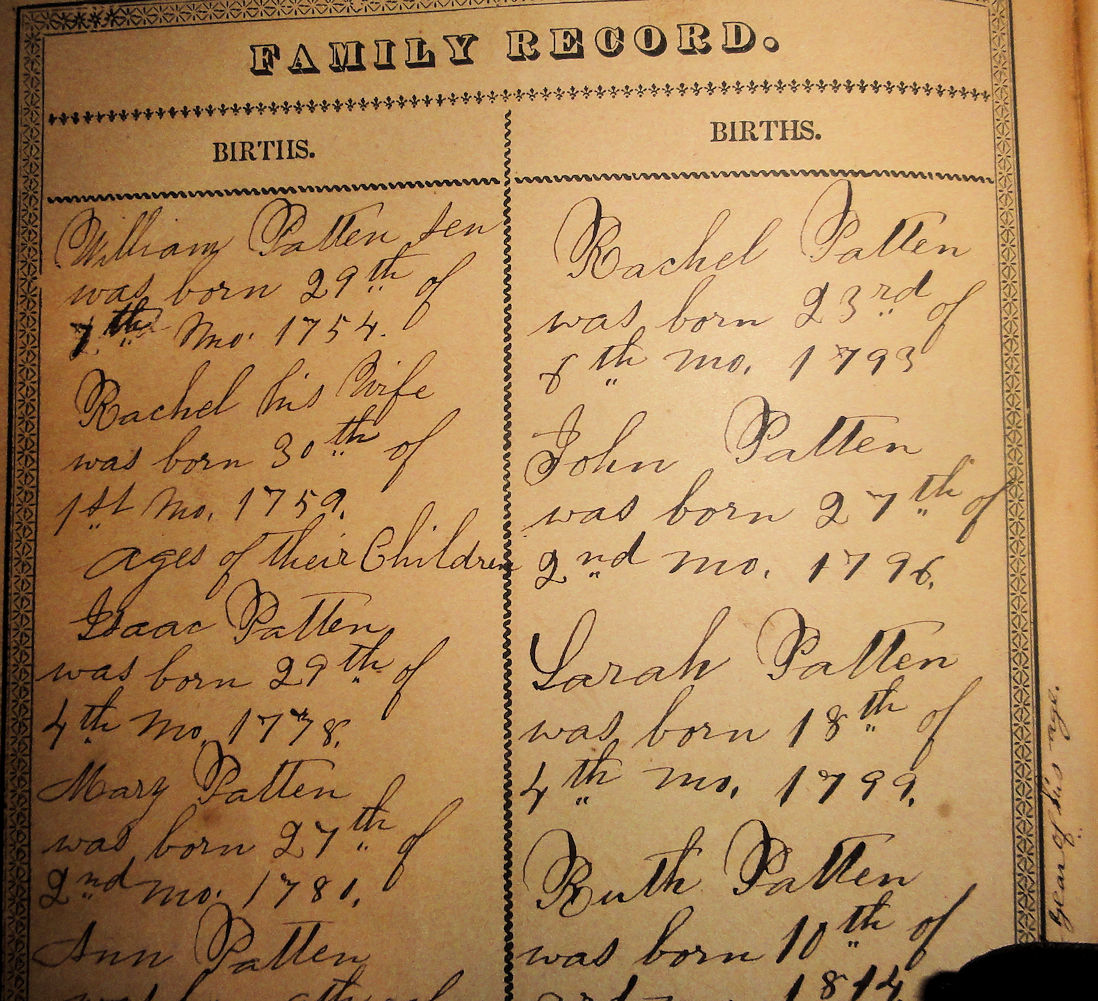 FAMILY RECORD.
BIRTHS.
William Patten Sen
was born 29th of
7th Mo. 1754.
Rachel his Wife
was born 30th of
1st Mo. 1759.
ages of their Children
Isaac Patten
was born 29th of
4th Mo. 1778.
Mary Patten
was born 27th of
2nd mo. 1781.
Ann Patten
was born
BIRTHS.
Rachel Patten
was born 23rd of
th mo. 1793
John Patten
was born 27th of
2nd mo. 1796.
Sarah Patten
was born 18th of
4th mo. 1799.
Ruth Patten
was born 10th of
year of his age.